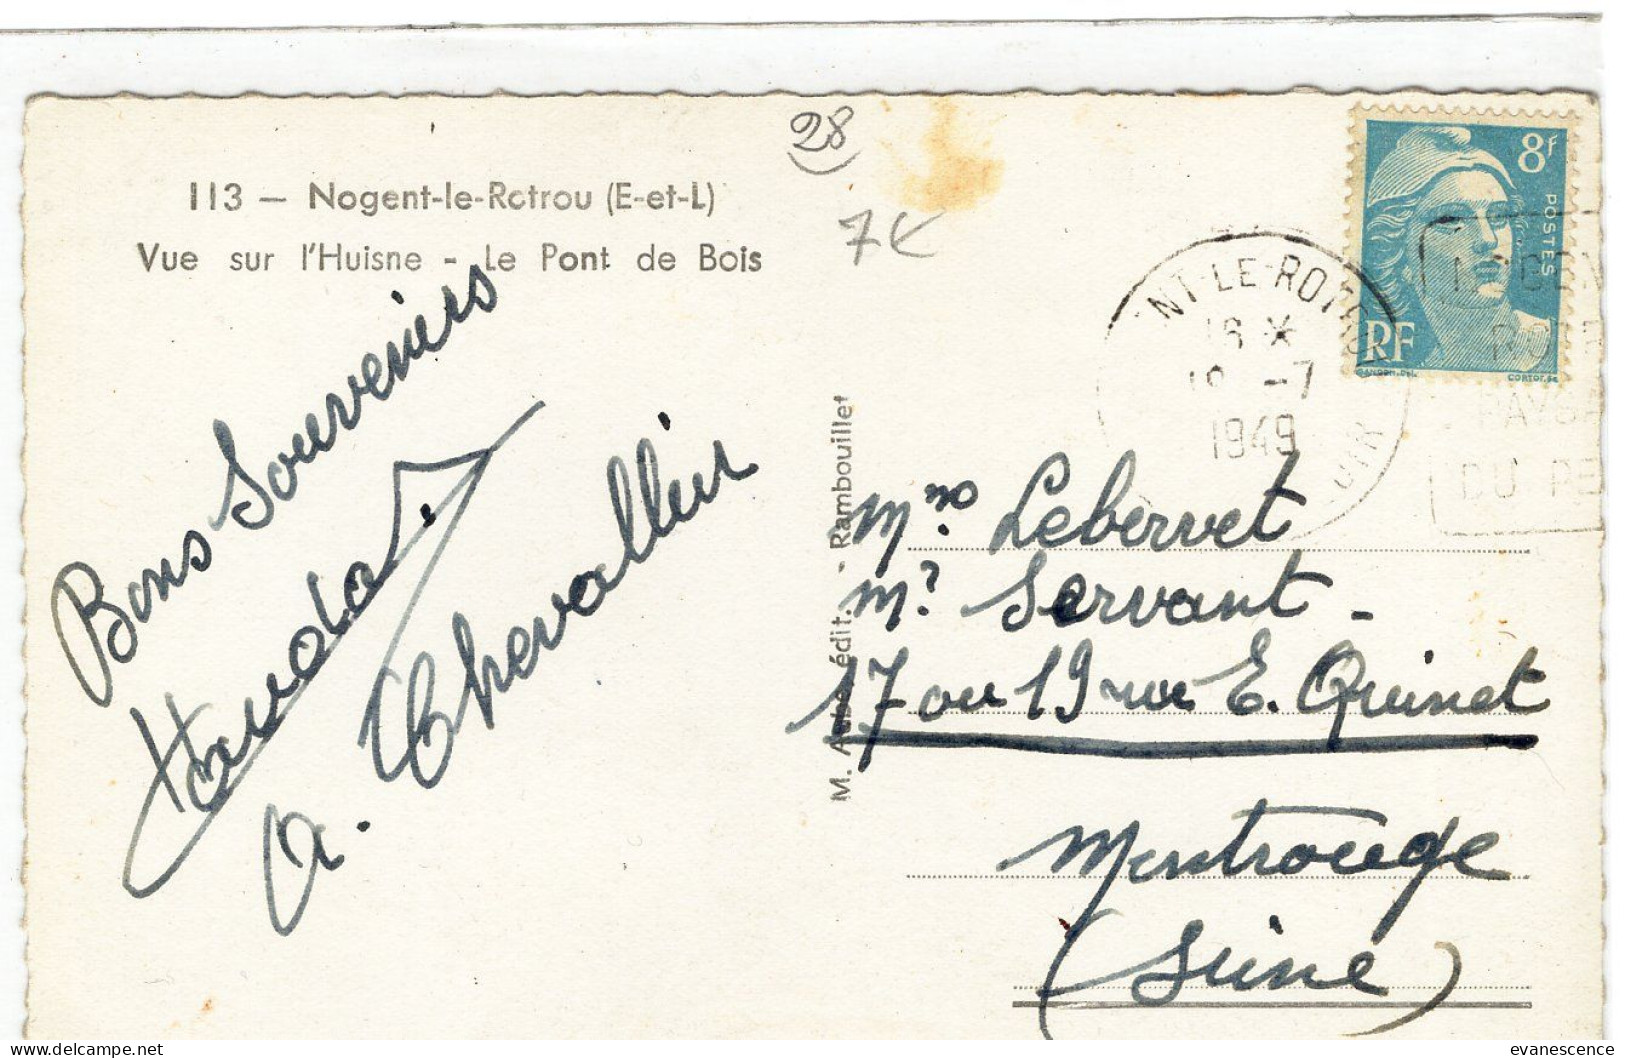 113 — Nogent-le-Rotrou (E-et-L)
Vue sur l'Huisne - Le Pont de Bois
28
7€
Bons Souvenirs
A. Chevallier
M. Aubé, édit. - Rambouillet
8f
POSTES
RF
GANDON.Del.
CORTOT.Sc
NT-LE-ROTROU
16 *
-7
1949
DU PE
Lebervet
Servant -
17 ou 19 rue E. Quinet
Montrouge
(Seine)
evanescence